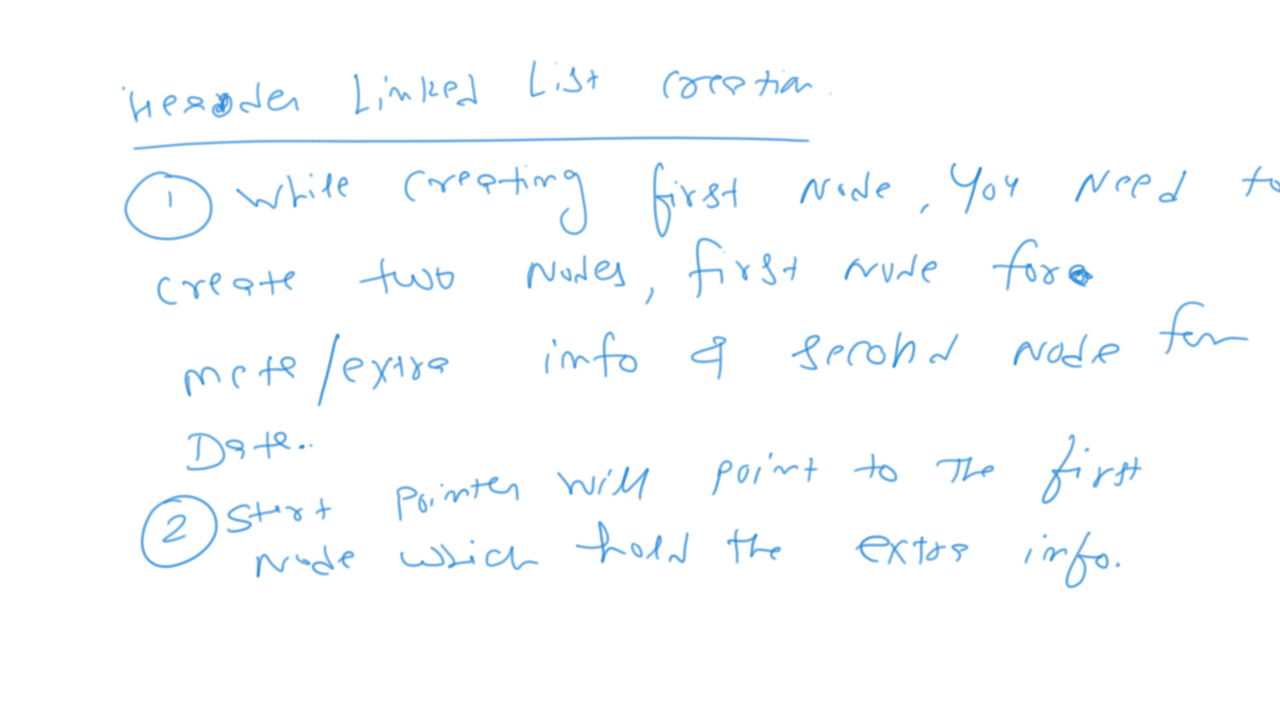 Header Linked List creation
① While creating first node, you need to
create two nodes, first node for
meta/extra info & second node for
Data..
② Start pointer will point to the first
node which hold the extra info.